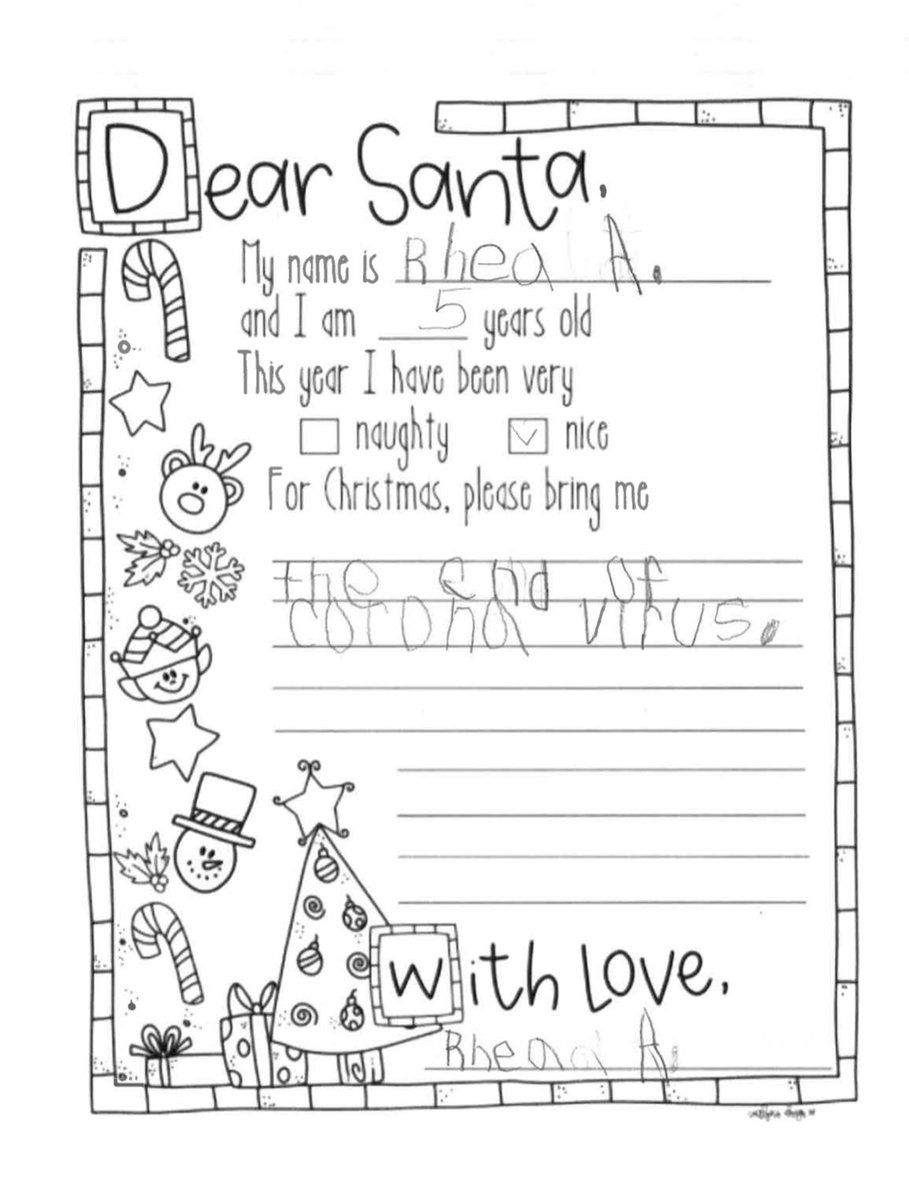 Dear Santa,
My name is Rhea A.
and I am 5 years old
This year I have been very
naughty ✓ nice
For Christmas, please bring me
the end of
corona virus.
With Love,
Rhea A.